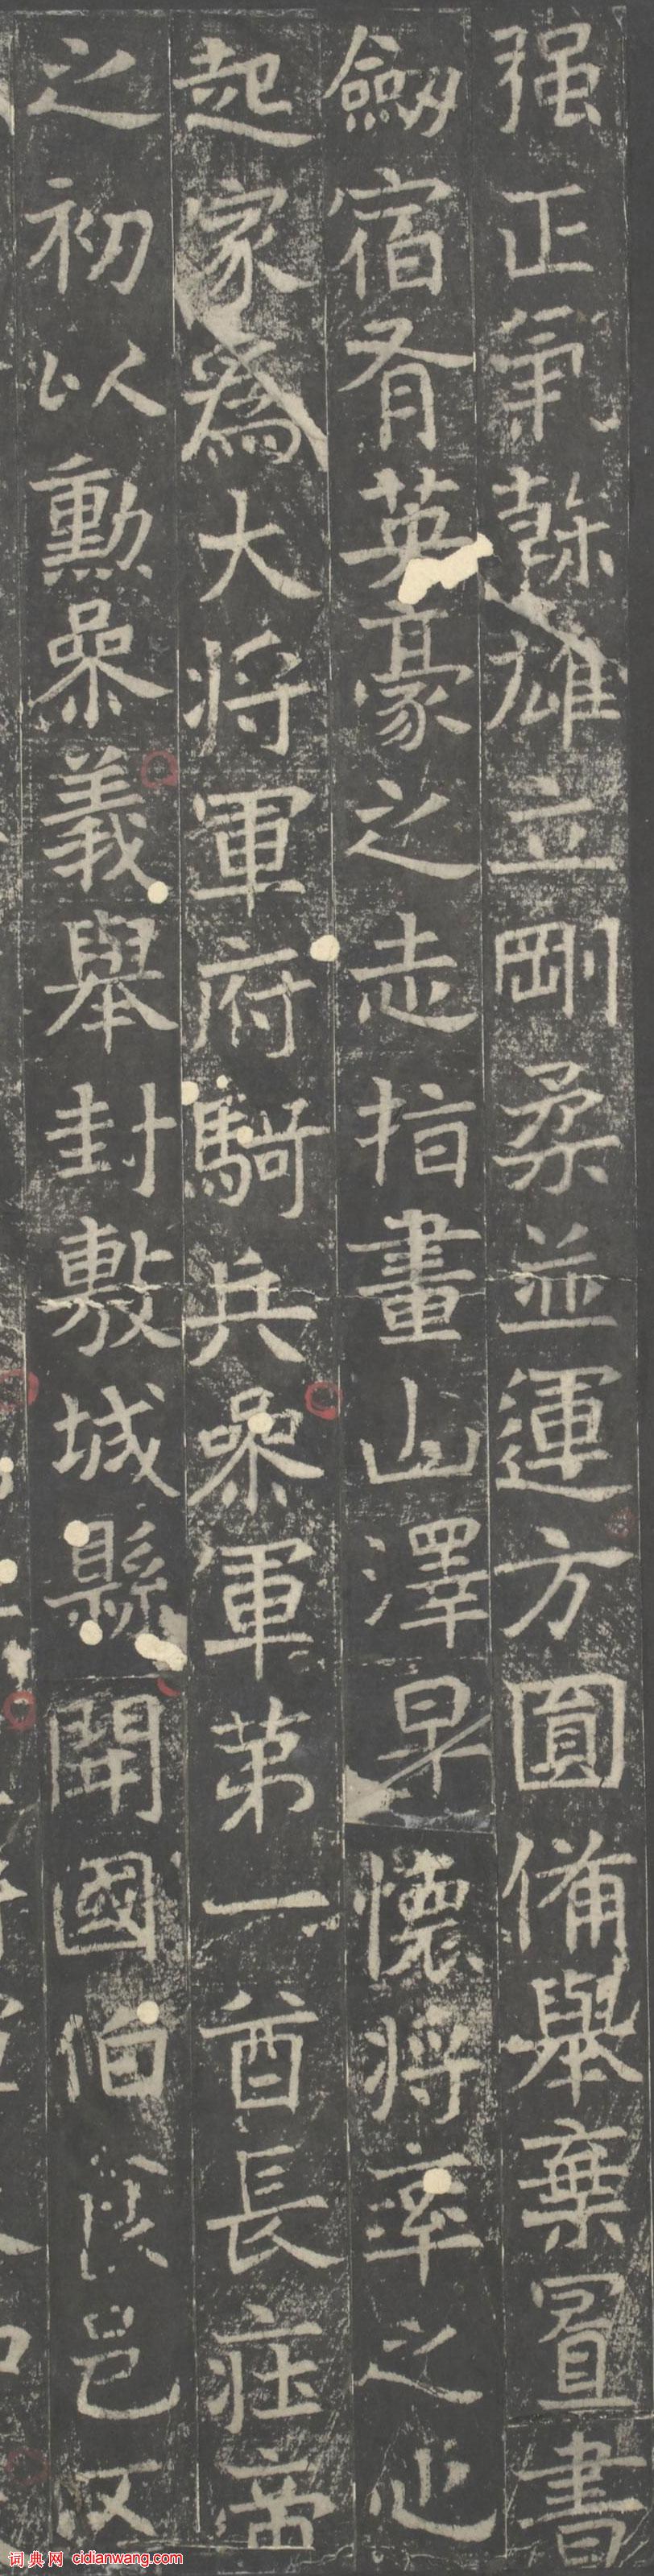 强正氣幹雄立剛柔並運方圓備舉棄置書
劒宿有英豪之志指畫山澤早懷將率之心
起家為大將軍府騎兵叅軍第一酋長莊帝
之初以勳叅義舉封敷城縣開國伯食邑汉
词典网 cidianwang.com